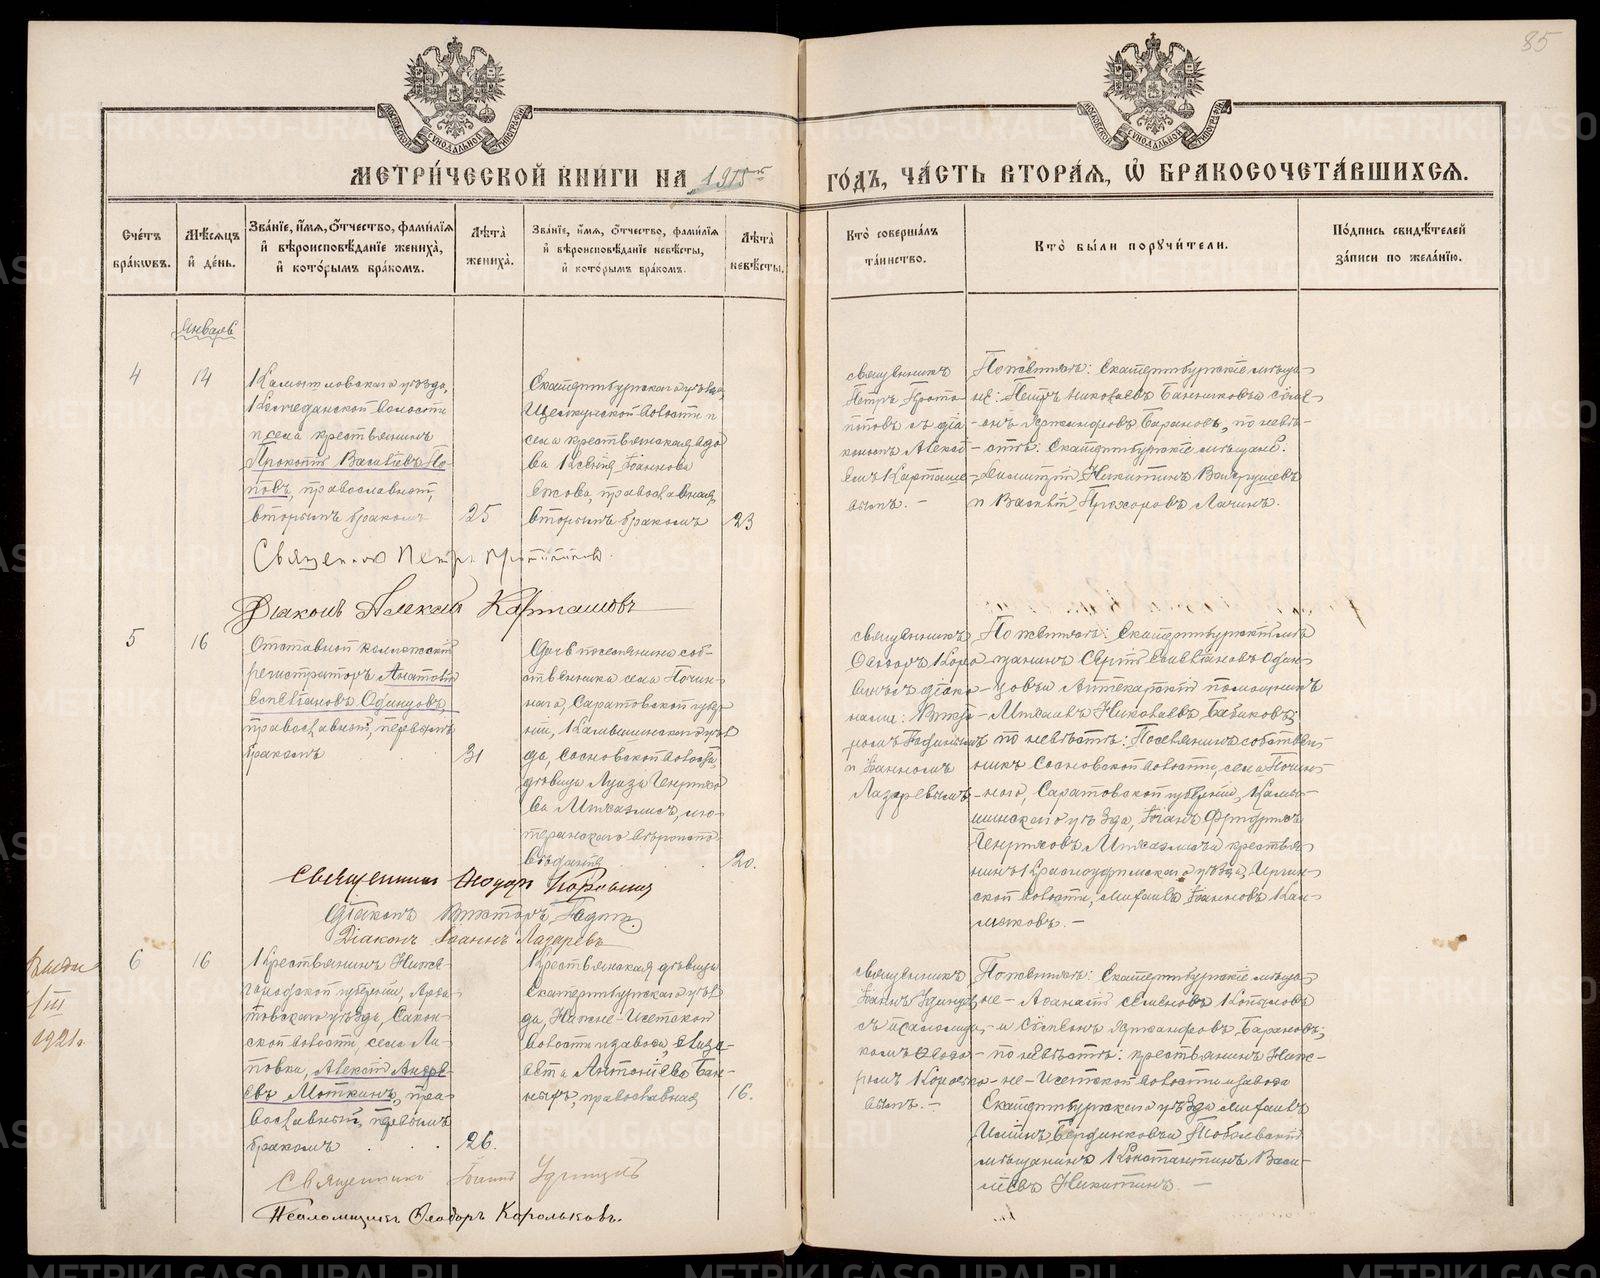 85
МЕТРИ́ЧЕСКОЙ КНИ́ГИ НА 1915й ГО́ДЪ, ЧА́СТЬ ВТОРА́Я, Ѽ БРАКОСОЧЕТА́ВШИХСЯ.
Сче́тъ бра́кѡвъ.
Мѣ́сяцъ и҆ де́нь.
Зва́нїе, и҆́мя, ѻ҆́тчество, фами́лїя и҆ вѣроисповѣ́данїе жениха̀, и҆ кото́рымъ бра́комъ.
Лѣ́та̀ жениха̀.
Зва́нїе, и҆́мя, ѻ҆́тчество, фами́лїя и҆ вѣроисповѣ́данїе невѣ́сты, и҆ кото́рымъ бра́комъ.
Лѣ́та̀ невѣ́сты.
Кто̀ соверша́лъ та́инство.
Кто̀ бы́ли порꙋчи́тели.
По́дпись свидѣ́телей за́писи по жела́нїю.
Январь
4
14
Камышловскаго уѣзда,
Колчеданской волости
и села крестьянинъ
Прокопій Васильевъ По-
повъ, православный,
вторымъ бракомъ
25
Екатеринбургскаго уѣзда,
Щелкунской волости и
села крестьянская вдо
ва Ксенія Іоаннова
Ежова, православная,
вторымъ бракомъ
23
священникъ
Петръ Прото
поповъ съ діа
кономъ Алексі
емъ Карташе
вымъ. -
По женихѣ: Екатеринбургскіе мѣща-
не: Петръ Николаевъ Банниковъ и Симе-
онъ Александровъ Барановъ, по невѣ-
стѣ: Екатеринбургскіе мѣщане:
Димитрій Никитинъ Вахрушевъ
и Василій Прохоровъ Лачинъ.
Священникъ Петръ
Діаконъ Алексій Карташовъ
5
16
Отставной коллежскій
регистраторъ Анатолій
Селивановъ Одинцовъ,
православный, первымъ
бракомъ
31
Дочь поселянина соб-
ственника села Почин-
наго, Саратовской губер
ніи, Камышинскаго уѣз
да, Сосновской волости,
дѣвица Луиза Генрихо
ва Михаэлисъ, лю-
теранскаго вѣроиспо-
вѣданія
20.
священникъ
Ѳеодоръ Коро
винъ съ діако-
нами: Викто-
ромъ
и Іоанномъ
Лазаревымъ
По женихѣ: Екатеринбургскій мѣ
щанинъ Сергій Селивановъ Один-
цовъ и Аптекарскій помощникъ
Михаилъ Николаевъ Бабиковъ;
по невѣстѣ: Поселянинъ собствен-
никъ Сосновской волости, села Почин-
наго, Саратовской губерніи, Камы-
шинскаго уѣзда, Іоганъ Фридрихъ
Генриховъ Михаэлисъ и крестья-
нинъ Красноуфимскаго уѣзда,
ской волости, Михаилъ Іоанновъ
Священникъ Ѳеодоръ Коровинъ
Діаконъ Викторъ
Діаконъ Іоаннъ Лазаревъ
Выдан
/III
1921г
6
16
Крестьянинъ Ниже-
городской губерніи, Арза-
мовскаго уѣзда,
ской волости, села Ли-
повки, Алексій Андре-
евъ Моткинъ, пра-
вославный, первымъ
бракомъ
26.
Крестьянская дѣвица
Екатеринбургскаго уѣз
да, Нижне-Исетской
волости и завода, Елиза-
вета Антоніева Бан-
ныхъ, православная
16.
священникъ
Іоаннъ Удинцевъ
съ псаломщи-
комъ Ѳеодо-
ромъ Корольк
вымъ. -
По женихѣ: Екатеринбургскіе мѣща-
не - Аѳанасій Семеновъ Копыловъ
и Симеонъ Александровъ Барановъ;
по невѣстѣ: крестьянинъ Ниж-
не-Исетской волости и завода
Екатеринбургскаго уѣзда Михаилъ
Ильинъ Бердниковъ и Тобольскій
мѣщанинъ Константинъ Васи-
льевъ Никитинъ. -
Священникъ Іоаннъ Удинцевъ
Псаломщикъ Ѳеодоръ Корольковъ.
METRIKI.GASO-URAL.RU